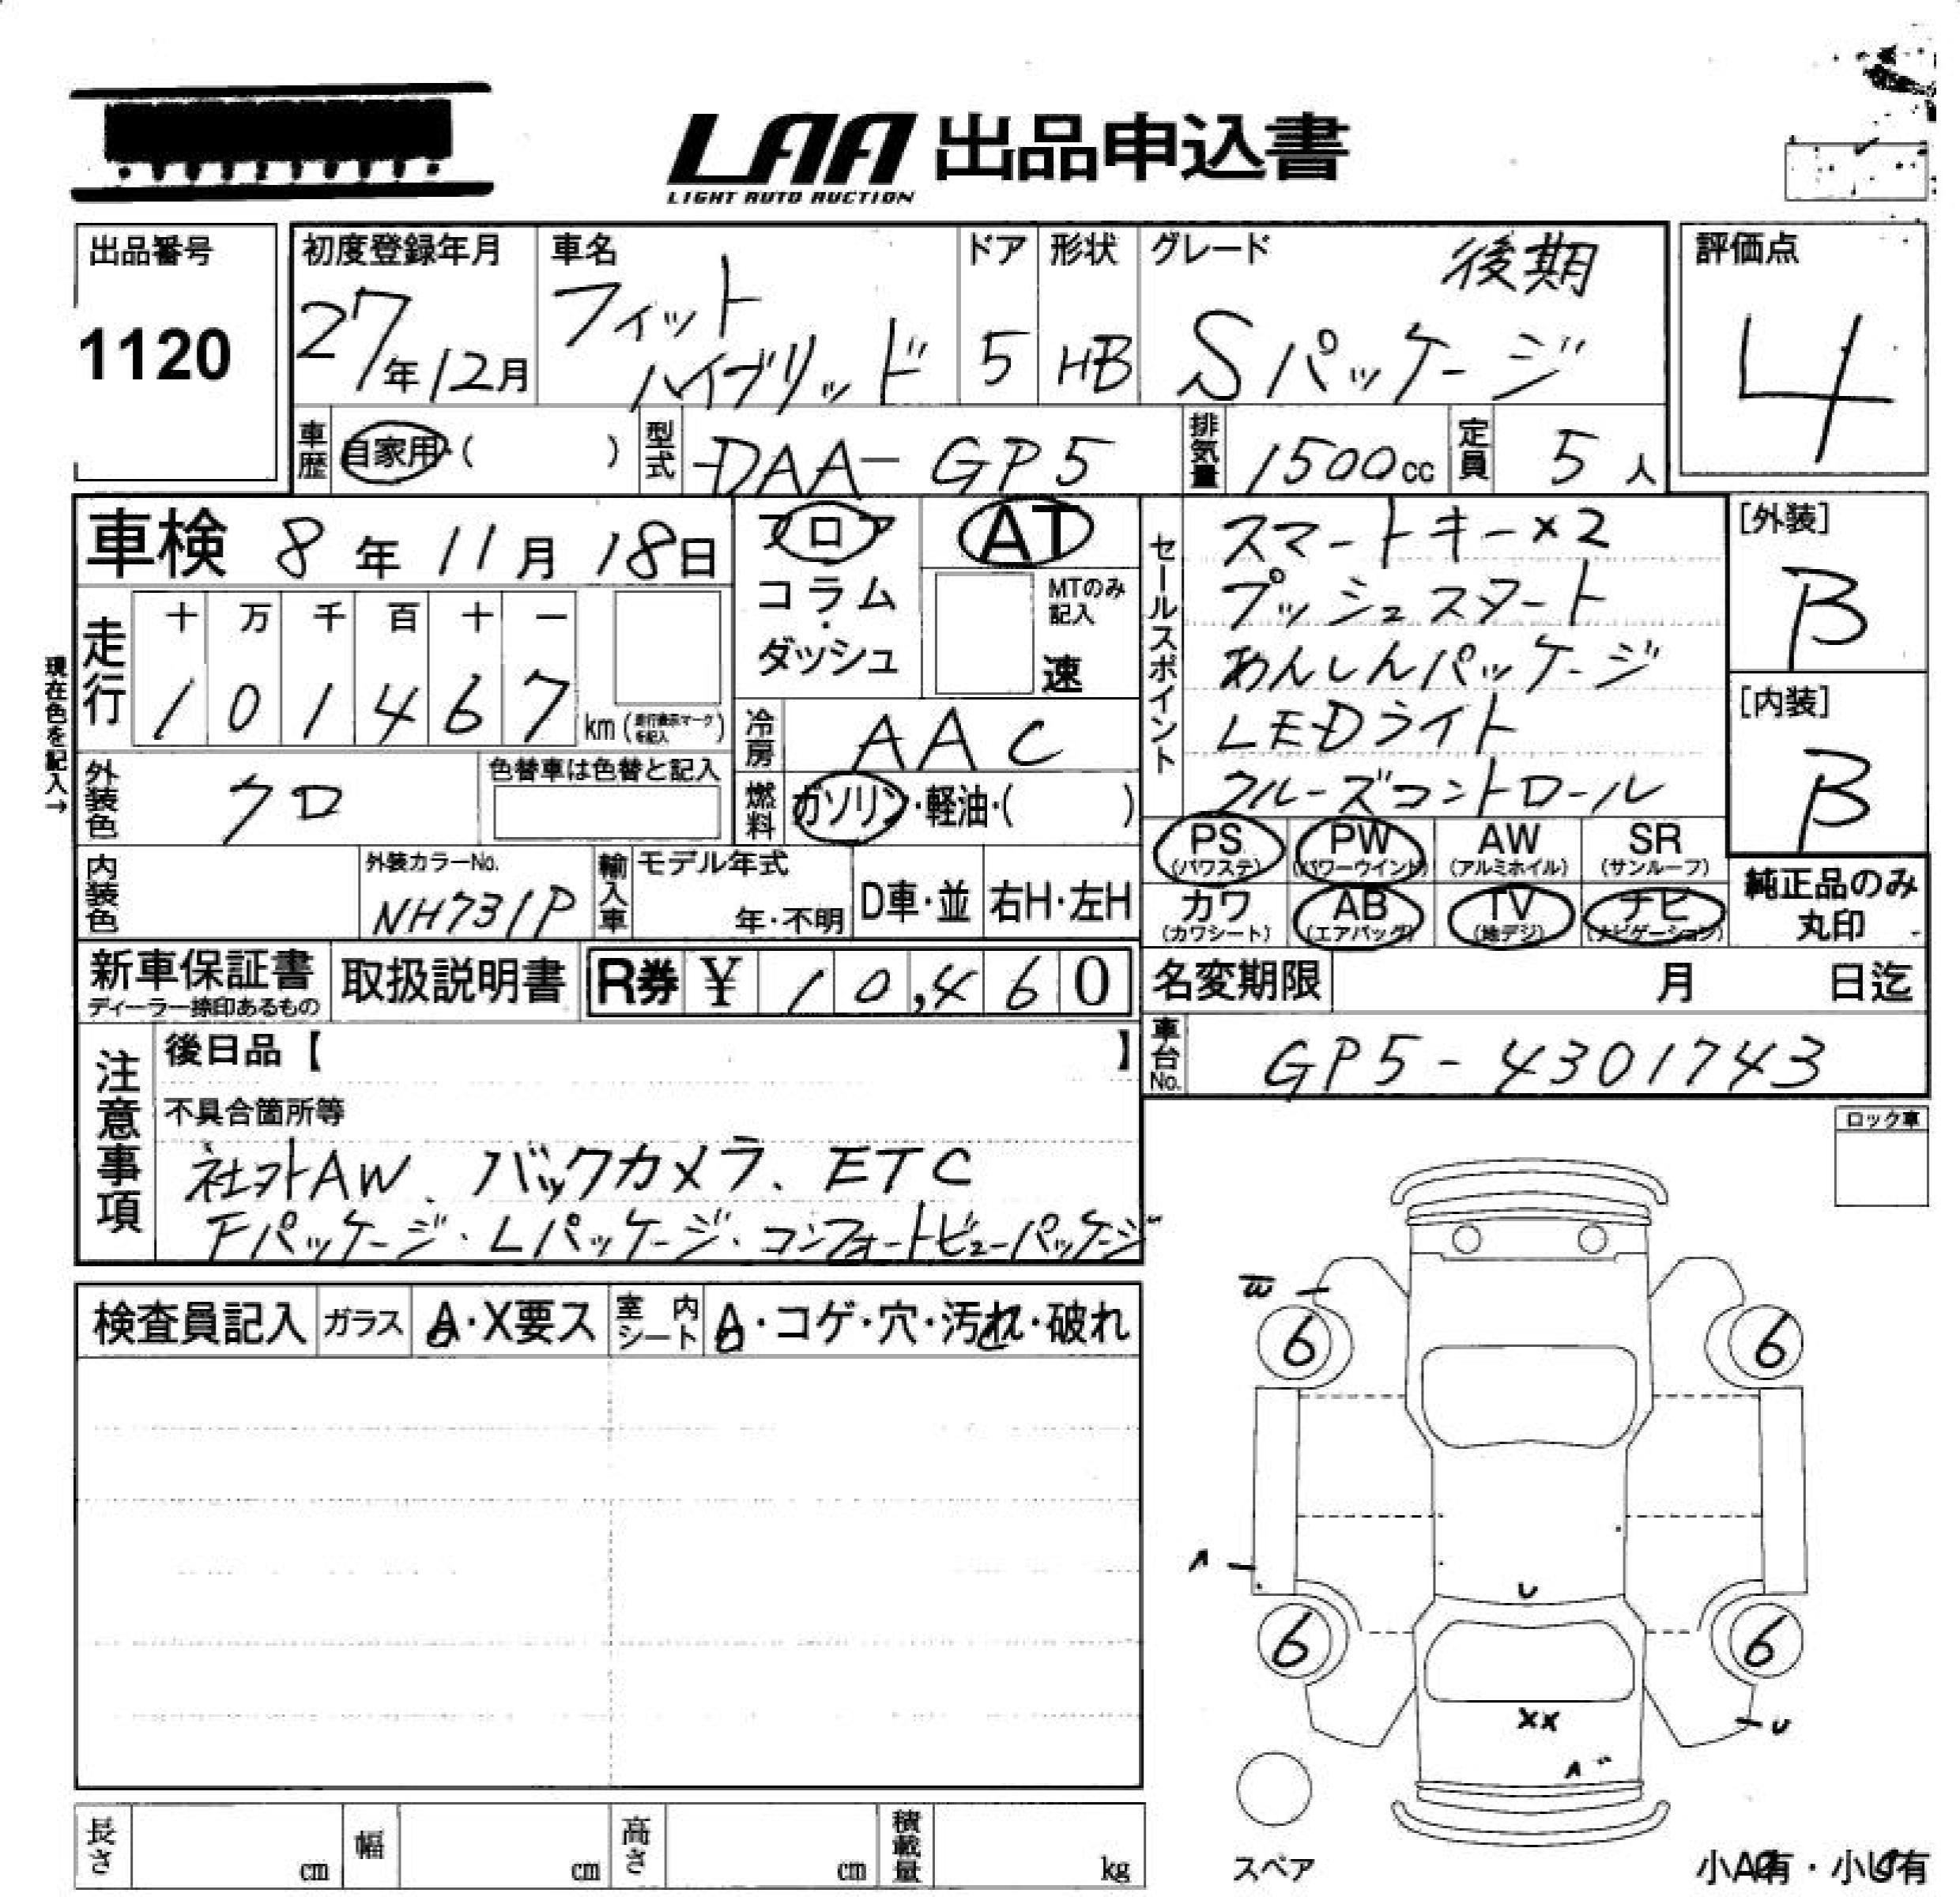 LAA 出品申込書
LIGHT AUTO AUCTION
出品番号
1120
初度登録年月
27年12月
車名
フィット
ハイブリッド
ドア
5
形状
HB
グレード
後期
Sパッケージ
評価点
4
車歴
自家用・( )
型式
DAA-GP5
排気量
1500cc
定員
5人
車検 8年 11月 18日
フロア
コラム
ダッシュ
AT
MTのみ
記入
速
セールスポイント
スマートキー×2
プッシュスタート
あんしんパッケージ
LEDライト
クルーズコントロール
[外装]
B
[内装]
B
現在色を記入→
走行
十 万 千 百 十 一
1 0 1 4 6 7 km (走行表示マークを記入)
冷房
AAC
外装色
クロ
色替車は色替と記入
燃料
ガソリン・軽油・( )
PS
(パワステ)
PW
(パワーウインド)
AW
(アルミホイル)
SR
(サンルーフ)
内装色
外装カラーNo.
NH731P
輸入車
モデル年式
年・不明
D車・並
右H・左H
カワ
(カワシート)
AB
(エアバッグ)
TV
(地デジ)
ナビ
(ナビゲーション)
純正品のみ
丸印
新車保証書
ディーラー捺印あるもの
取扱説明書
R券 ¥ 10,460
名変期限 月 日迄
車台No.
GP5-4301743
注意事項
後日品【 】
不具合箇所等
社外AW、バックカメラ、ETC
Fパッケージ・Lパッケージ・コンフォートビューパッケージ
ロック車
検査員記入
ガラス
A・X要ス
室内シート
A・コゲ・穴・汚れ・破れ
W
6
6
A
U
6
6
XX
U
A
スペア
長さ cm
幅 cm
高さ cm
積載量 kg
小A有・小U有